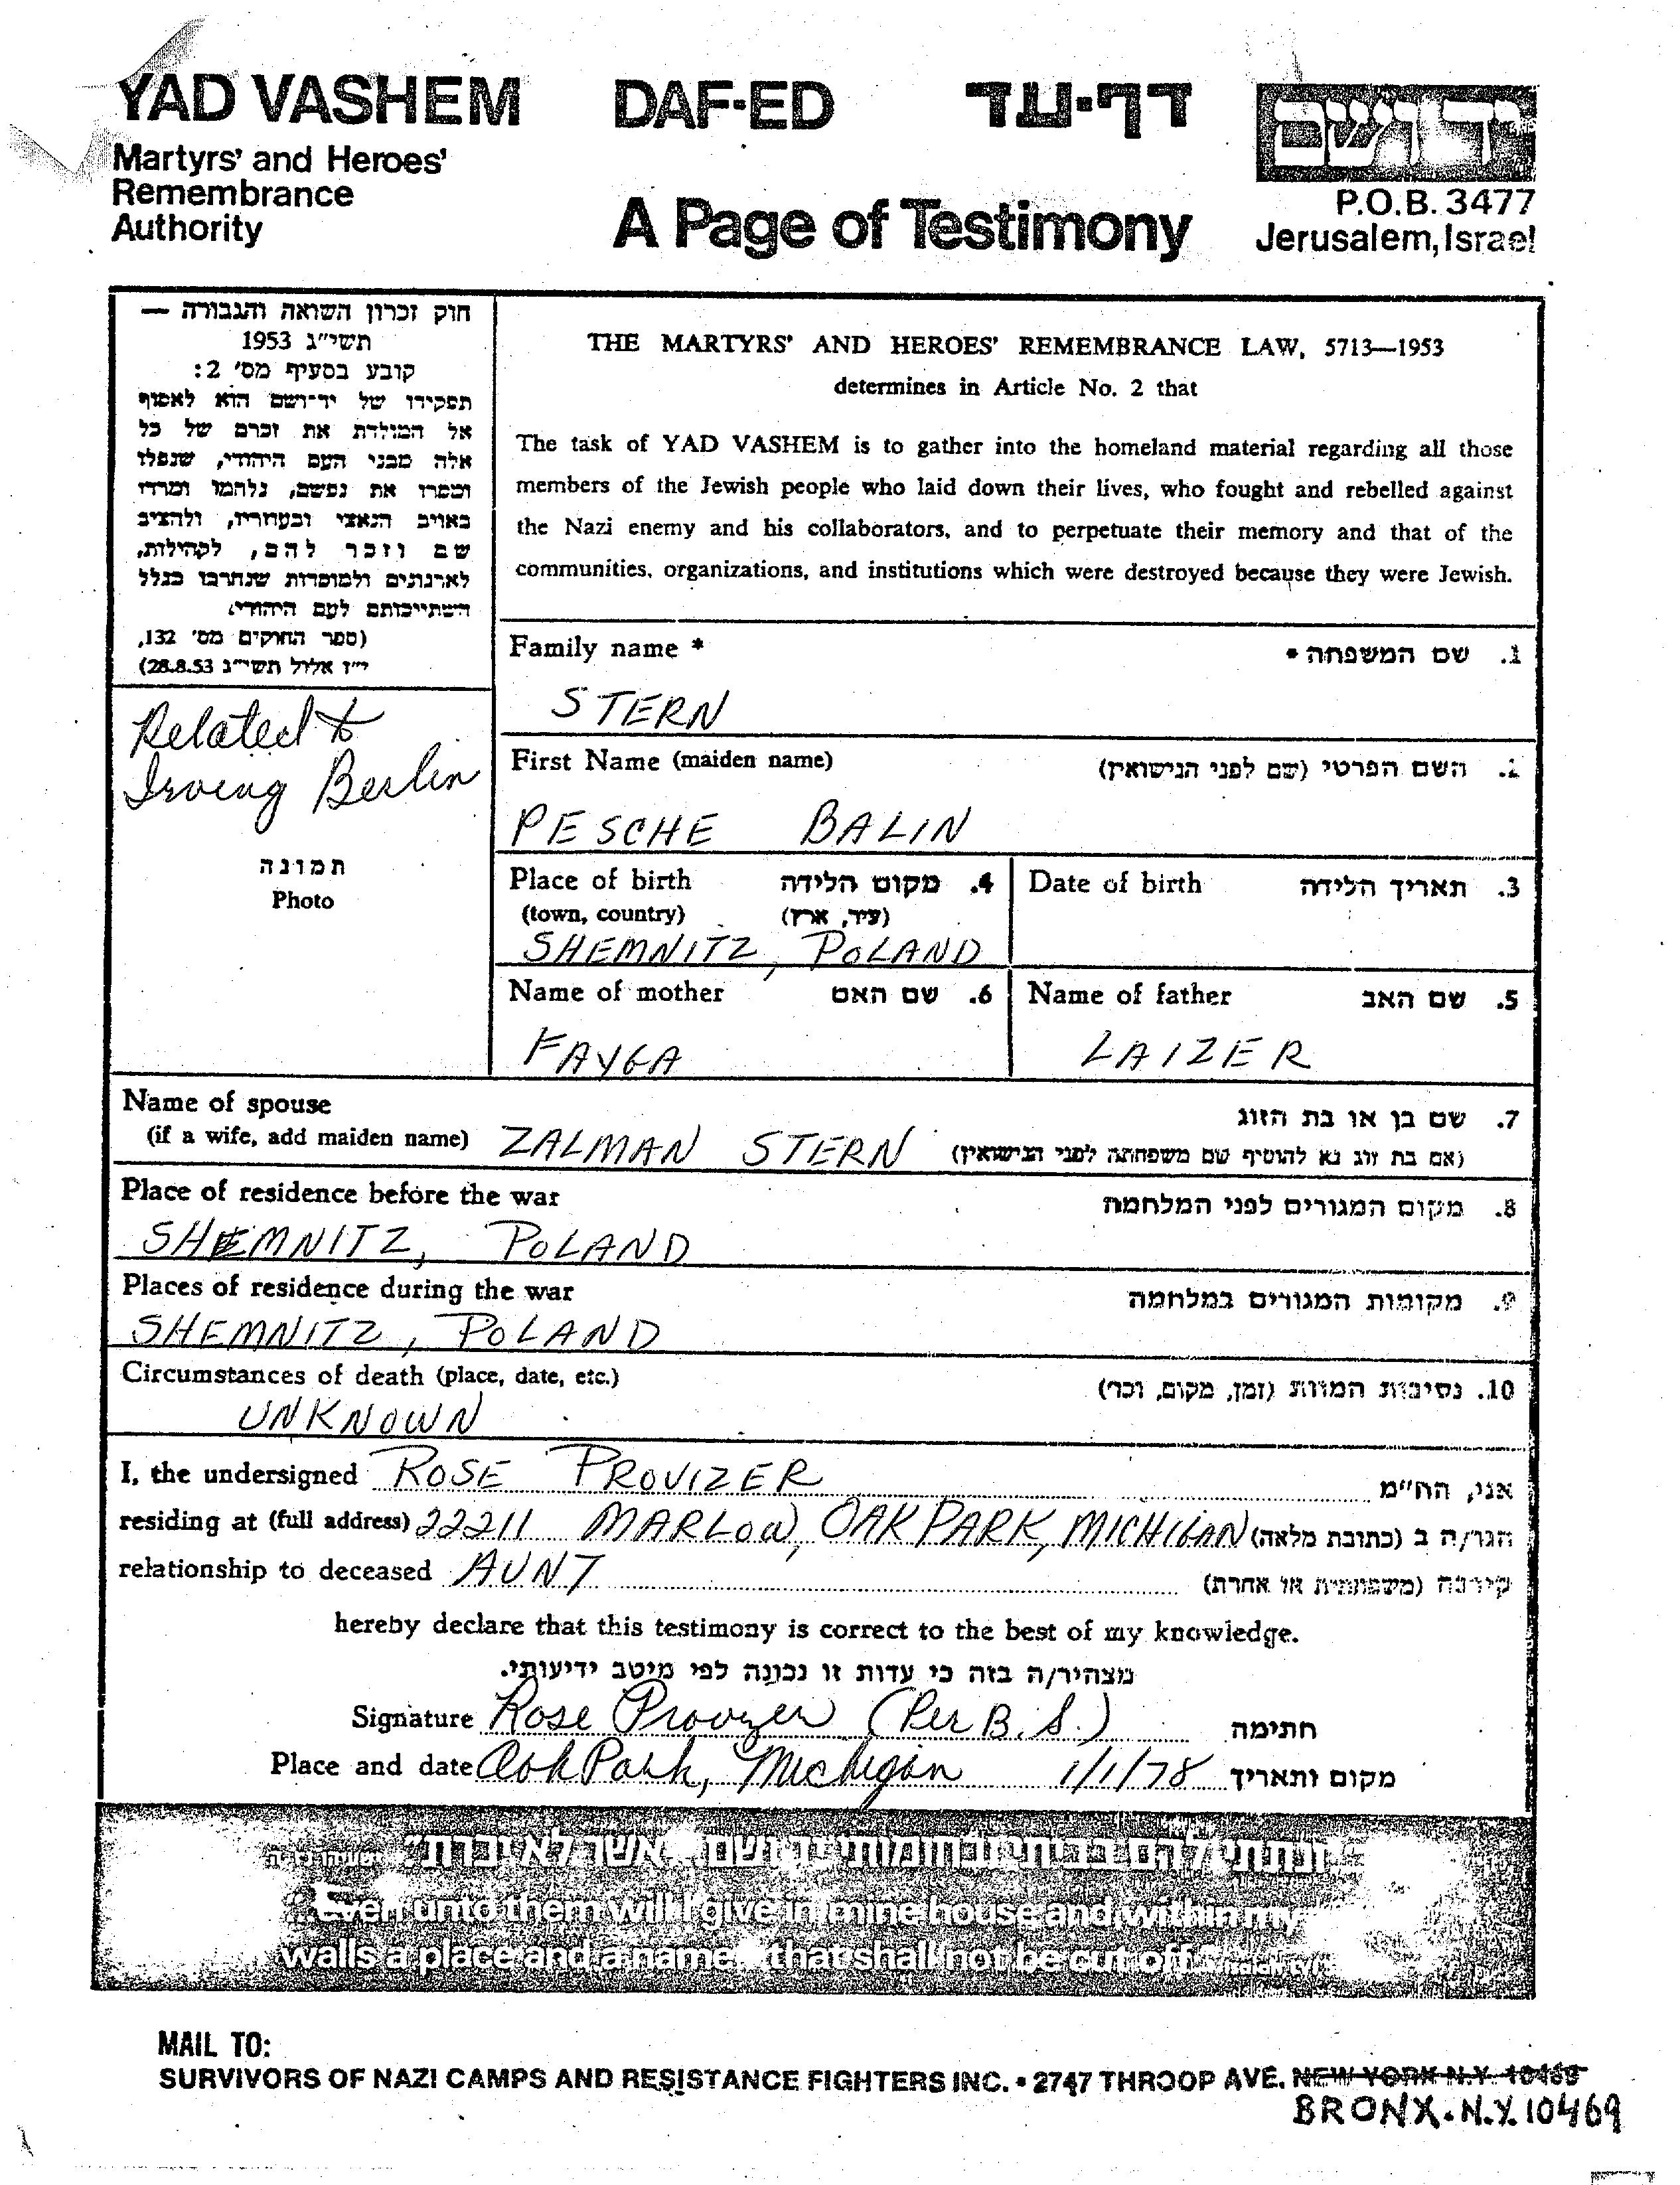 YAD VASHEM
Martyrs' and Heroes'
Remembrance
Authority
DAF-ED
דף-עד
A Page of Testimony
יד ושם
P.O.B. 3477
Jerusalem, Israel
חוק זכרון השואה והגבורה —
תשי"ג 1953
קובע בסעיף מס' 2:
תפקידו של יד-ושם הוא לאסוף
אל המולדת את זכרם של כל
אלה מבני העם היהודי, שנפלו
ומסרו את נפשם, נלחמו ומרדו
באויב הנאצי ובעוזריו, ולהציב
שם וזכר להם, לקהילות,
לארגונים ולמוסדות שנחרבו בגלל
השתייכותם לעם היהודי.
(ספר החוקים מס' 132,
י"ז אלול תשי"ג 28.8.53)
THE MARTYRS' AND HEROES' REMEMBRANCE LAW, 5713—1953
determines in Article No. 2 that
The task of YAD VASHEM is to gather into the homeland material regarding all those
members of the Jewish people who laid down their lives, who fought and rebelled against
the Nazi enemy and his collaborators, and to perpetuate their memory and that of the
communities, organizations, and institutions which were destroyed because they were Jewish.
Related to
Irving Berlin
תמונה
Photo
Family name * 1. שם המשפחה *
STERN
First Name (maiden name) 2. השם הפרטי (שם לפני הנישואין)
PESCHE BALIN
Place of birth 4. מקום הלידה
(town, country) (עיר, ארץ)
SHEMNITZ, POLAND
Date of birth 3. תאריך הלידה
Name of mother 6. שם האם
FAYGA
Name of father 5. שם האב
LAIZER
Name of spouse 7. שם בן או בת הזוג
(if a wife, add maiden name) ZALMAN STERN (אם בת זוג נא להוסיף שם משפחתה לפני הנישואין)
Place of residence before the war 8. מקום המגורים לפני המלחמה
SHEMNITZ, POLAND
Places of residence during the war 9. מקומות המגורים במלחמה
SHEMNITZ, POLAND
Circumstances of death (place, date, etc.) 10. נסיבות המוות (זמן, מקום, וכו')
UNKNOWN
I, the undersigned ROSE PROVIZER אני, הח"מ
residing at (full address) 22211 MARLOW, OAK PARK, MICHIGAN הגר/ה ב (כתובת מלאה)
relationship to deceased AUNT קירבה (משפחתית או אחרת)
hereby declare that this testimony is correct to the best of my knowledge.
מצהיר/ה בזה כי עדות זו נכונה לפי מיטב ידיעותי.
Signature Rose Provizer (Per B.S.) חתימה
Place and date Oak Park, Michigan 1/1/78 מקום ותאריך
"ונתתי להם בביתי ובחומותי יד ושם... אשר לא יכרת"
"...Even unto them will I give in mine house and within my
walls a place and a name... that shall not be cut off"
MAIL TO:
SURVIVORS OF NAZI CAMPS AND RESISTANCE FIGHTERS INC. • 2747 THROOP AVE. NEW YORK N.Y. 10469
BRONX. N.Y. 10469